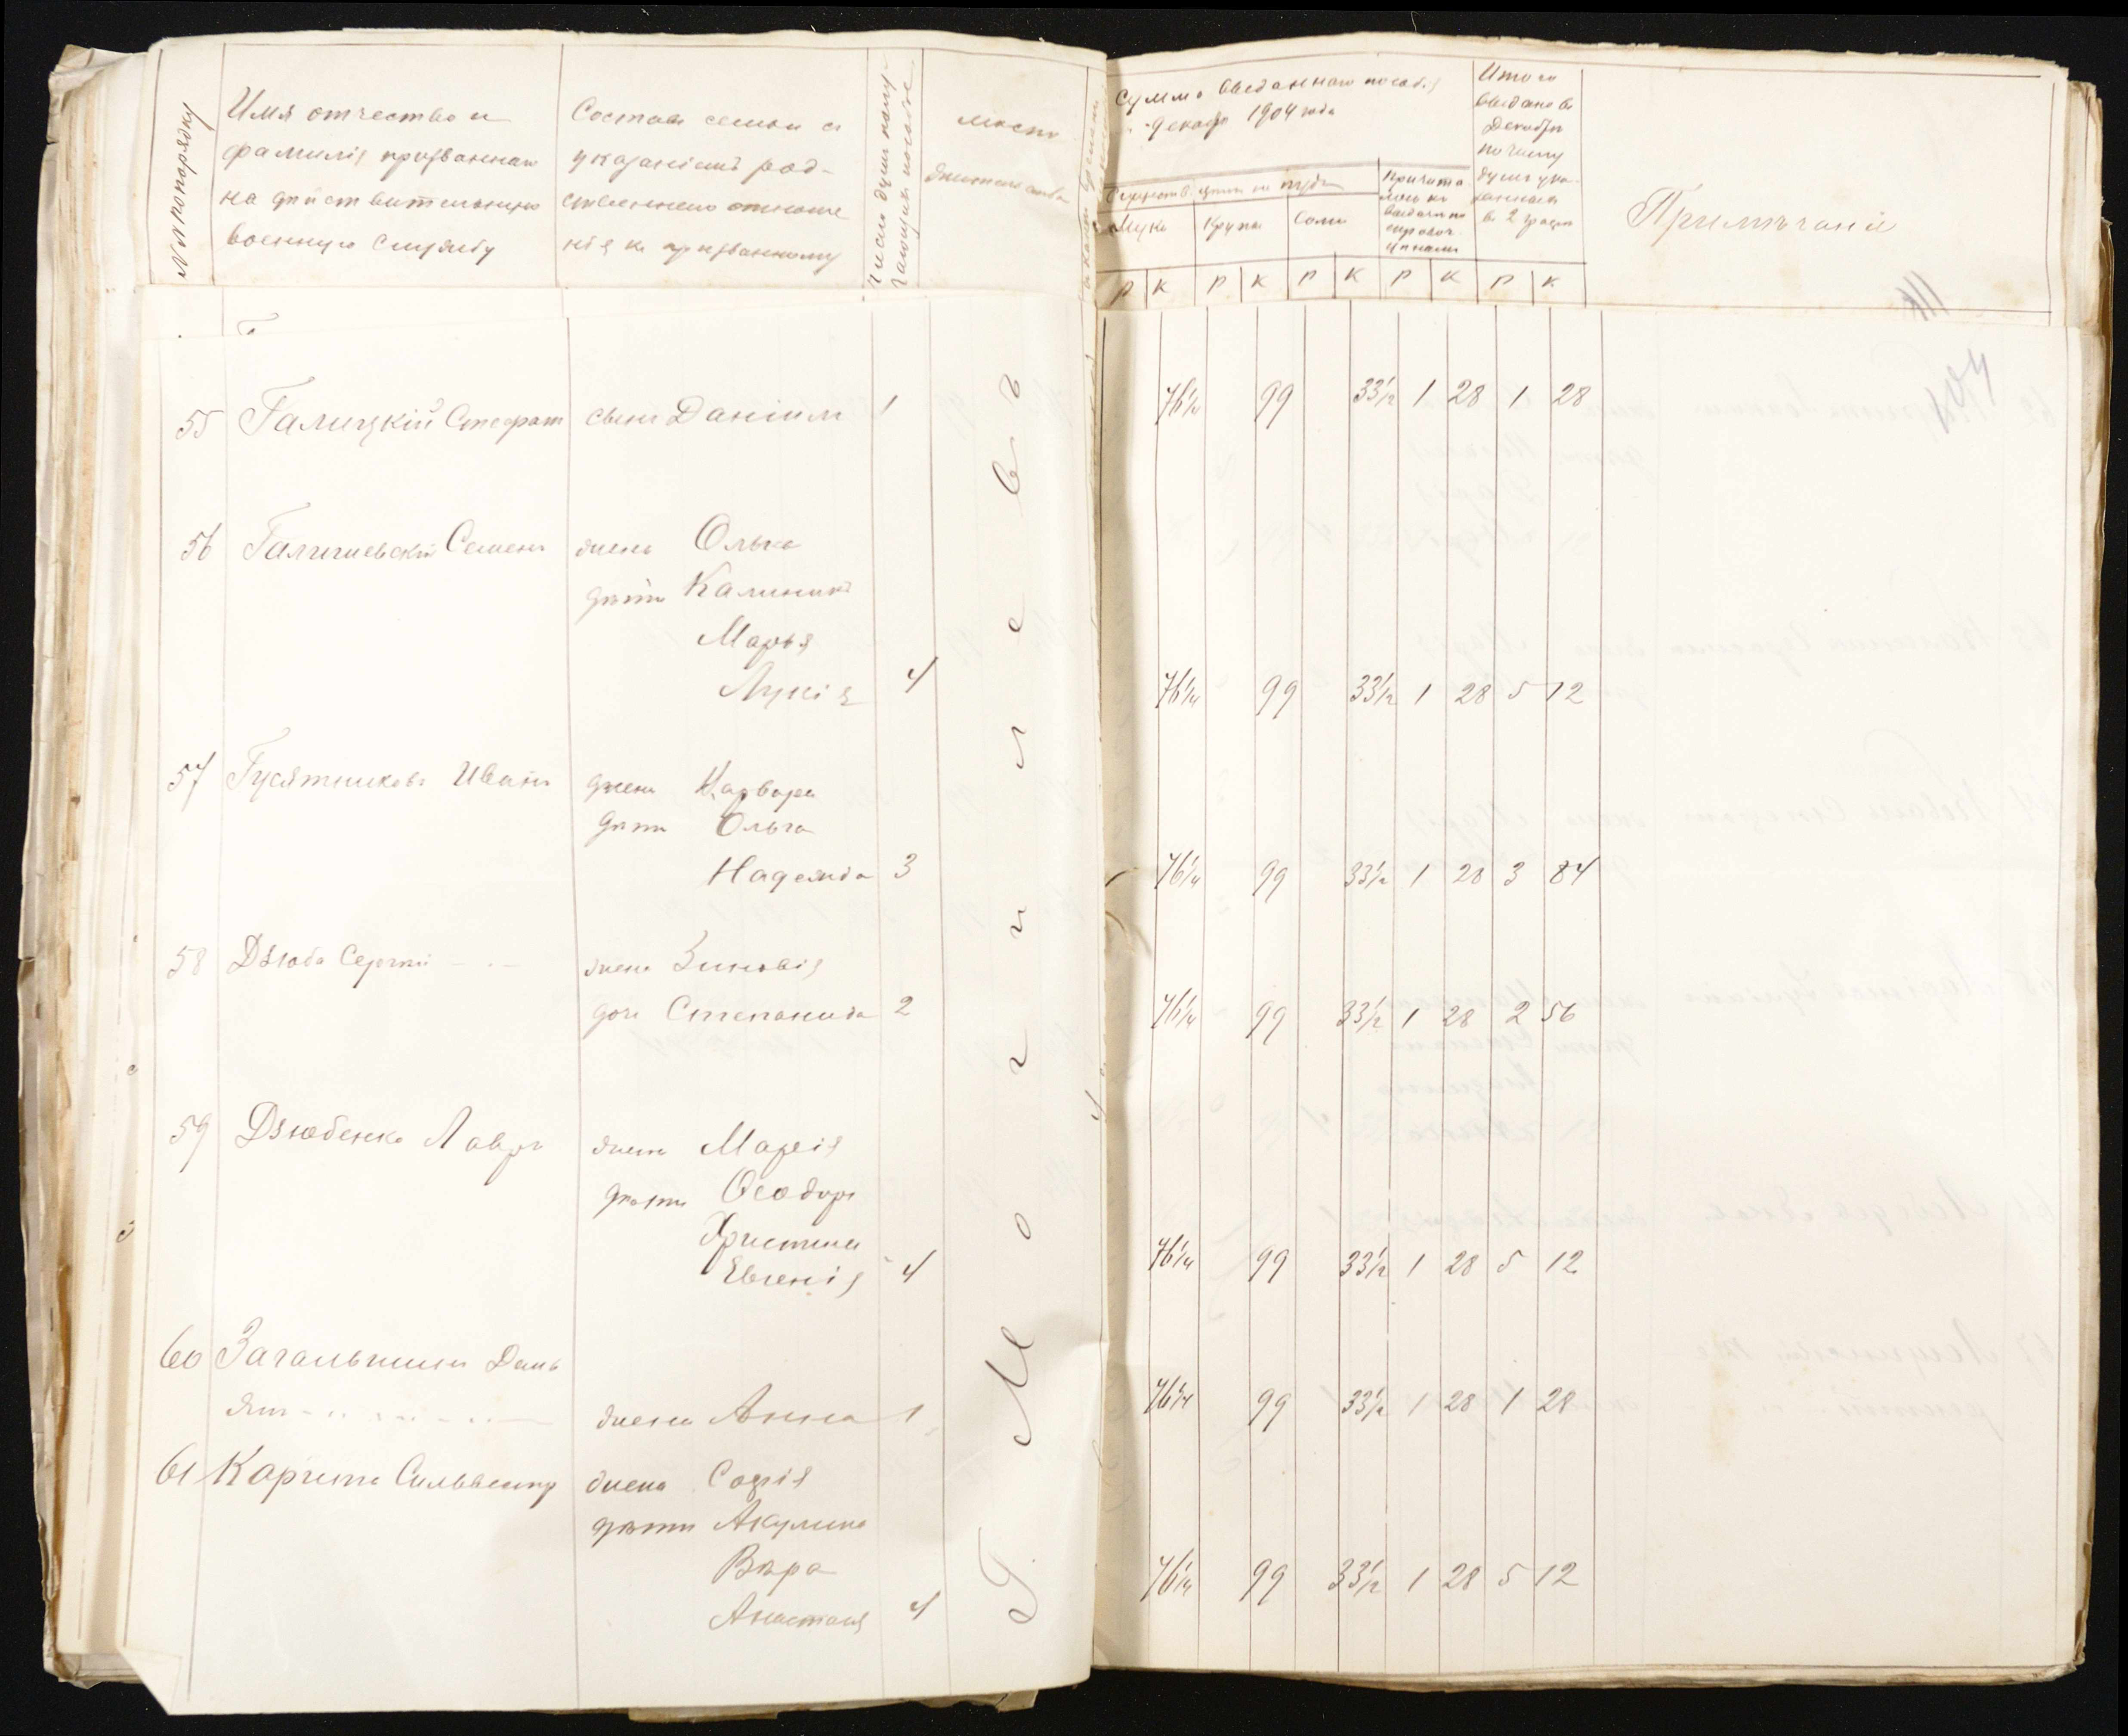 №№ по порядку
Имя отчество и
фамилія призваннаго
на дѣйствительную
военную службу
Составъ семьи съ
указаніемъ род-
ственнаго отноше
нія къ призванному
Число душъ
мѣсто
жительства
Сумма выданнаго пособія
декабр 1904 года
цѣны на пуды
Мука Крупы Соли
Причита
лось къ
выдачѣ по
справоч.
цѣнамъ
Итого
выдано въ
Декабрѣ
по числу
душъ ука-
занныхъ
въ 2 графѣ
Примѣчаніе
Р К Р К Р К Р К Р К
104
Г. Могилевъ
55 Галицкій Стефан сынъ Даніилъ 1 76¼ 99 33½ 1 28 1 28
56 Семенъ жена Ольга
дѣти Калиникъ
Марья
Лукія 4 76¼ 99 33½ 1 28 5 12
57 Гусятниковъ Иванъ жена Варвара
дѣти Ольга
Надежда 3 76¼ 99 33½ 1 28 3 84
58 Дзюба Сергѣй жена Зиновія
дочь Степанида 2 76¼ 99 33½ 1 28 2 56
59 Дзюбенко Лавръ жена Марія
дѣти Ѳеодоръ
Христина
Евгенія 4 76¼ 99 33½ 1 28 5 12
60 Дамь
янъ жена Анна 1 76¼ 99 33½ 1 28 1 28
61 Сильвестр жена Софія
дѣти Акулина
Вѣра
Анастасія 4 76¼ 99 33½ 1 28 5 12